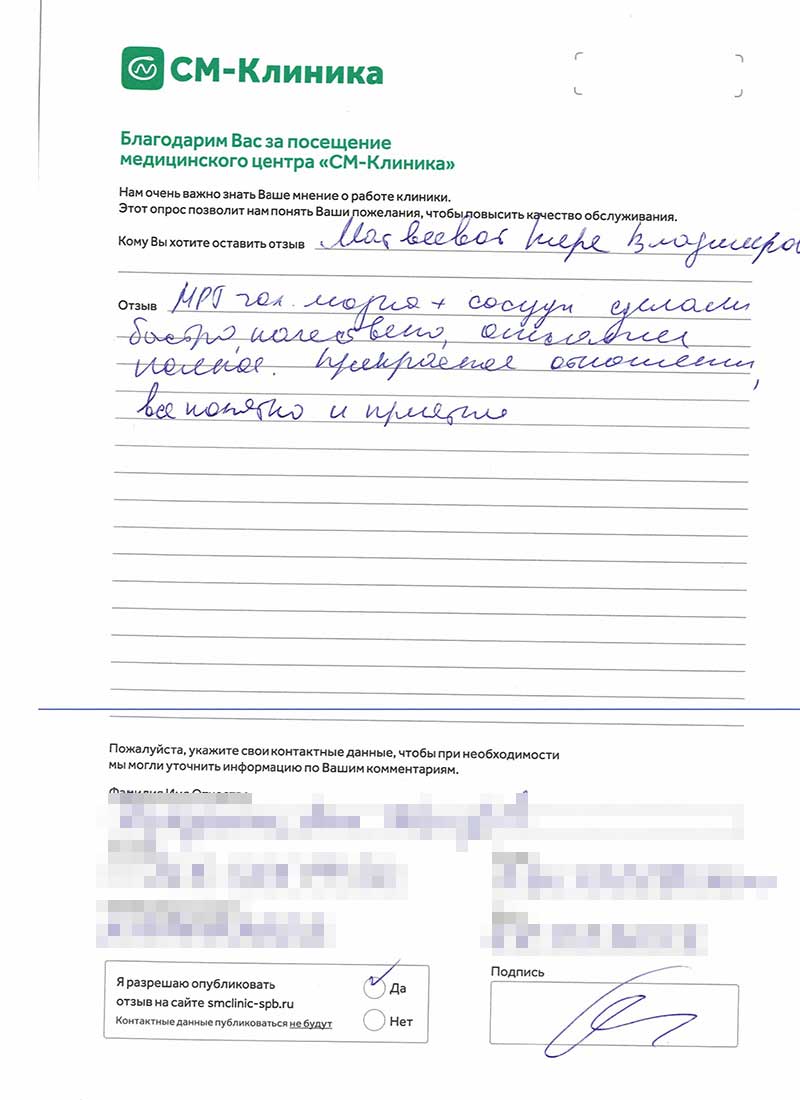 СМ-Клиника
Благодарим Вас за посещение
медицинского центра «СМ-Клиника»
Нам очень важно знать Ваше мнение о работе клиники.
Этот опрос позволит нам понять Ваши пожелания, чтобы повысить качество обслуживания.
Кому Вы хотите оставить отзыв Матвеевой Владимиро
Отзыв МРТ гол. мозга + сосуды сделали
быстро, качествено, описание
полное. Прекрасное отношение,
все понятно и приятно
Пожалуйста, укажите свои контактные данные, чтобы при необходимости
мы могли уточнить информацию по Вашим комментариям.
Фамилия Имя Отчество
Я разрешаю опубликовать
отзыв на сайте smclinic-spb.ru
Контактные данные публиковаться не будут
Да
Нет
Подпись